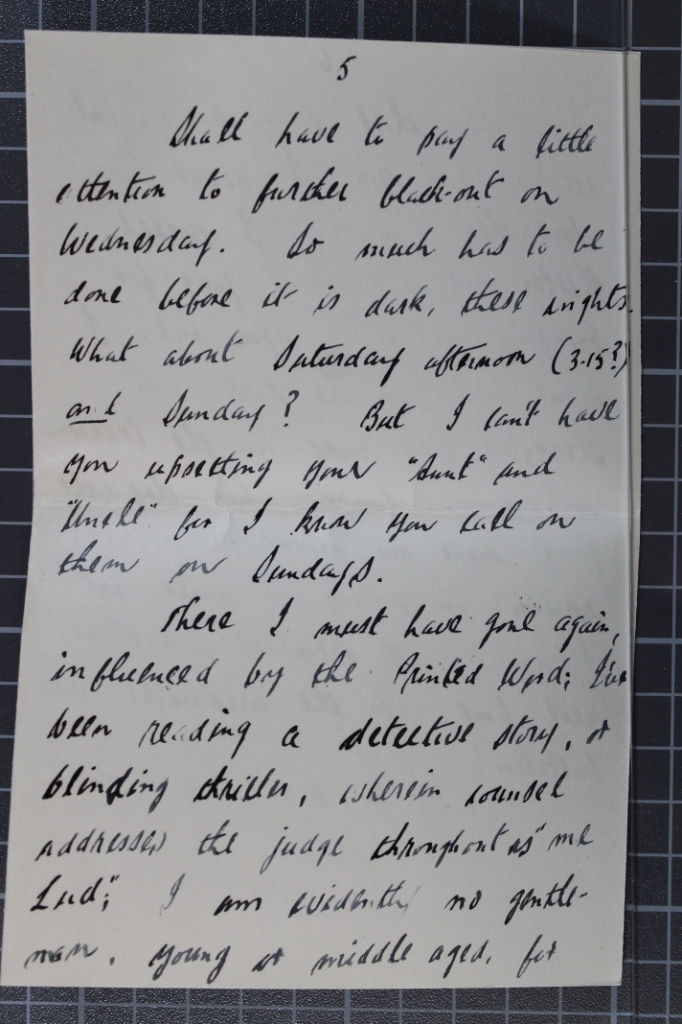 5
Shall have to pay a little
attention to further black-out on
Wednesday. So much has to be
done before it is dark, these nights.
What about Saturday afternoon (3.15?)
and Sunday? But I can't have
you upsetting your "Aunt" and
"Uncle" for I know you call on
them on Sundays.
There I must have gone again,
influenced by the Printed Word; I've
been reading a detective story, or
blinding thriller, wherein counsel
addresses the judge throughout as "me
Lud"; I am evidently no gentle-
man, young or middle aged, for